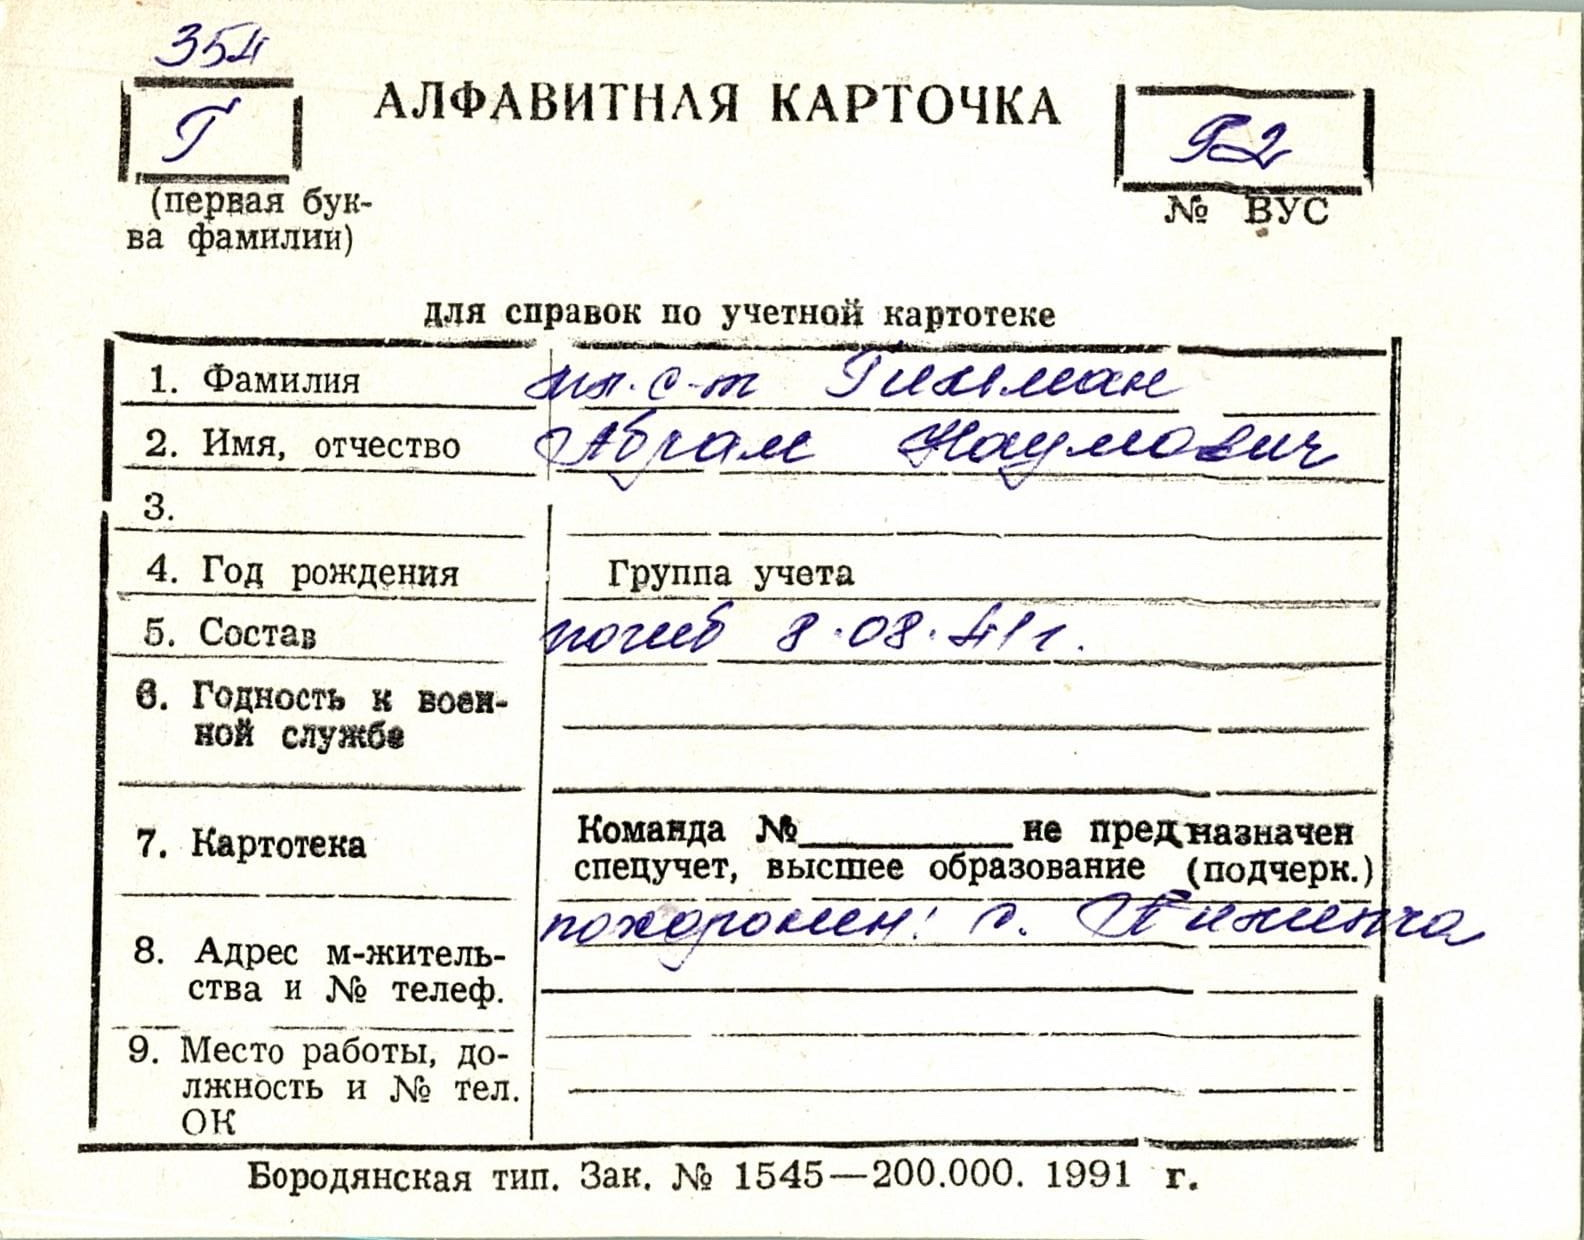 354
Г
АЛФАВИТНАЯ КАРТОЧКА
(первая бук-
ва фамилии)
№ ВУС
для справок по учетной картотеке
1. Фамилия мл. с-т
2. Имя, отчество Абрам Наумович
3.
4. Год рождения Группа учета
5. Состав погиб 8.08.41 г.
6. Годность к воен-
ной службе
7. Картотека
Команда № не предназначен
спецучет, высшее образование (подчерк.)
похоронен: с.
8. Адрес м-житель-
ства и № телеф.
9. Место работы, до-
лжность и № тел.
ОК
Бородянская тип. Зак. № 1545—200.000. 1991 г.